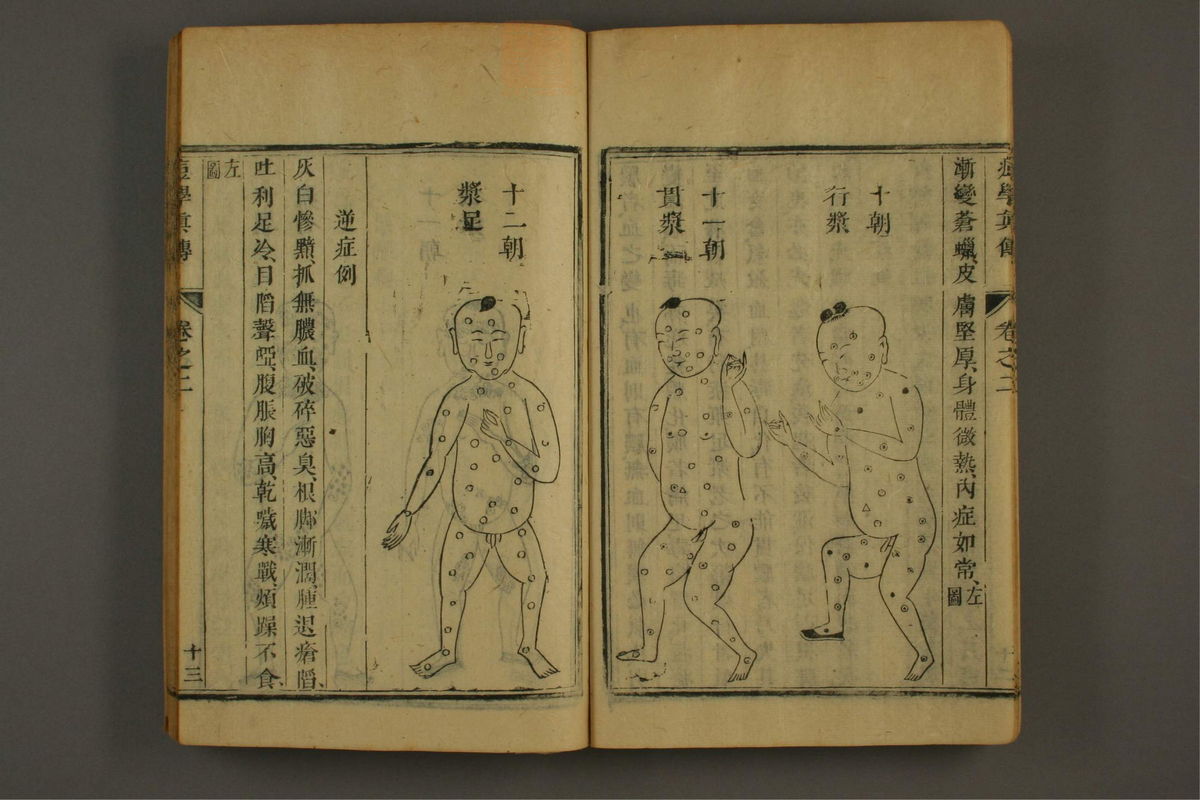 痘學眞傳
卷之二
漸變蒼蠟、皮膚堅厚、身體微熱、內症如常、左圖
十朝
行漿
十一朝
貫漿
十二朝
漿足
逆症例
灰白慘黯、抓無膿血、破碎惡臭、根脚漸濶、腫退瘡陷、
吐利足冷、目陷聲啞、腹脹胸高、乾嘔寒戰、煩躁不食、
左圖
痘學眞傳
卷之二
十三